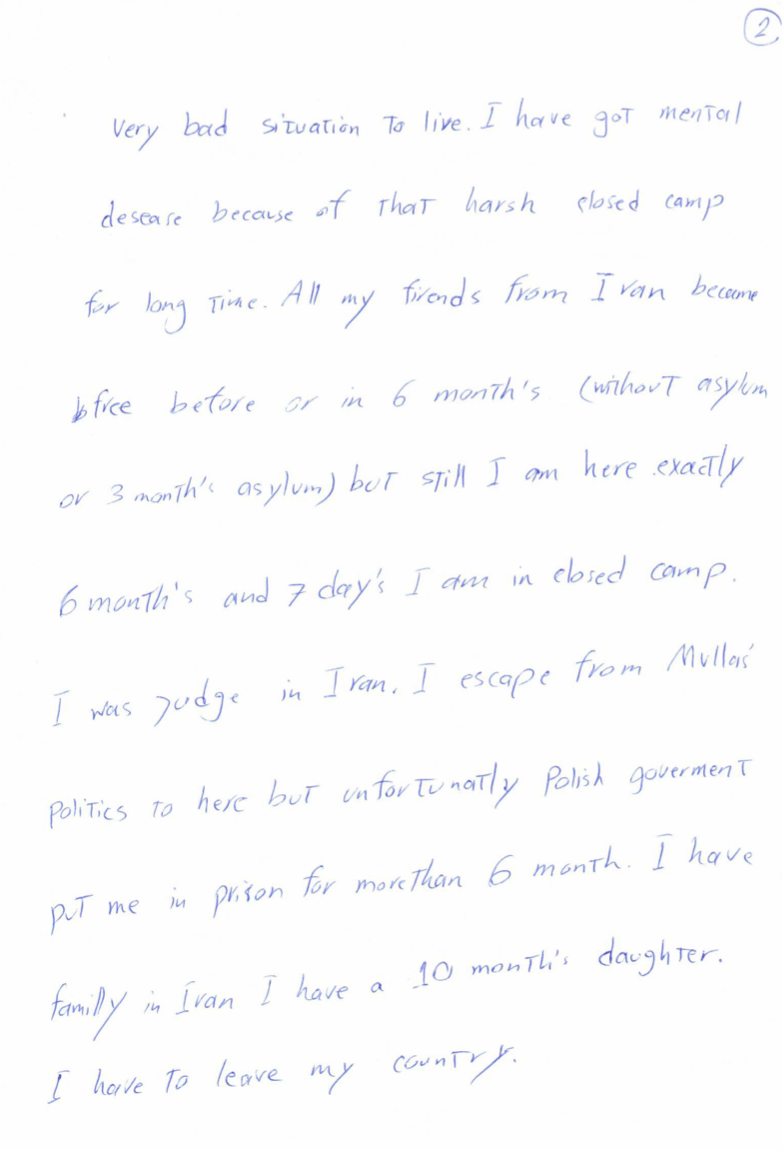 2
very bad situation to live. I have got mental
desease because of that harsh closed camp
for long time. All my firends from Iran become
free before or in 6 month's (without asylum
or 3 month's asylum) but still I am here exactly
6 month's and 7 day's I am in closed camp.
I was judge in Iran. I escape from Mullas'
politics to here but unfortunatly Polish goverment
put me in prison for more than 6 month. I have
familly in Iran I have a 10 month's daughter.
I have to leave my country.